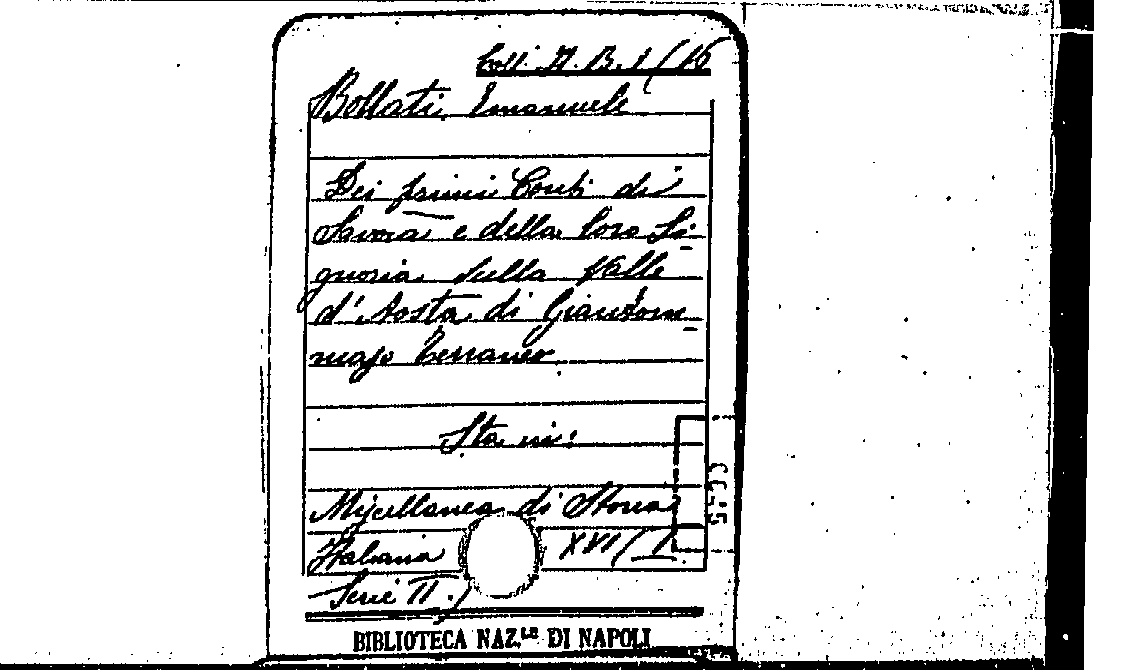 Coll. It. B. 1/16
Bollati, Emanuele
Dei primi Conti di
Savoia e della loro Si-
gnoria sulla Valle
d'Aosta di Giantom-
maso Terraneo
Sta in:
Miscellanea di Storia
Italiana XVI/I
Serie II.)
BIBLIOTECA NAZ.LE DI NAPOLI